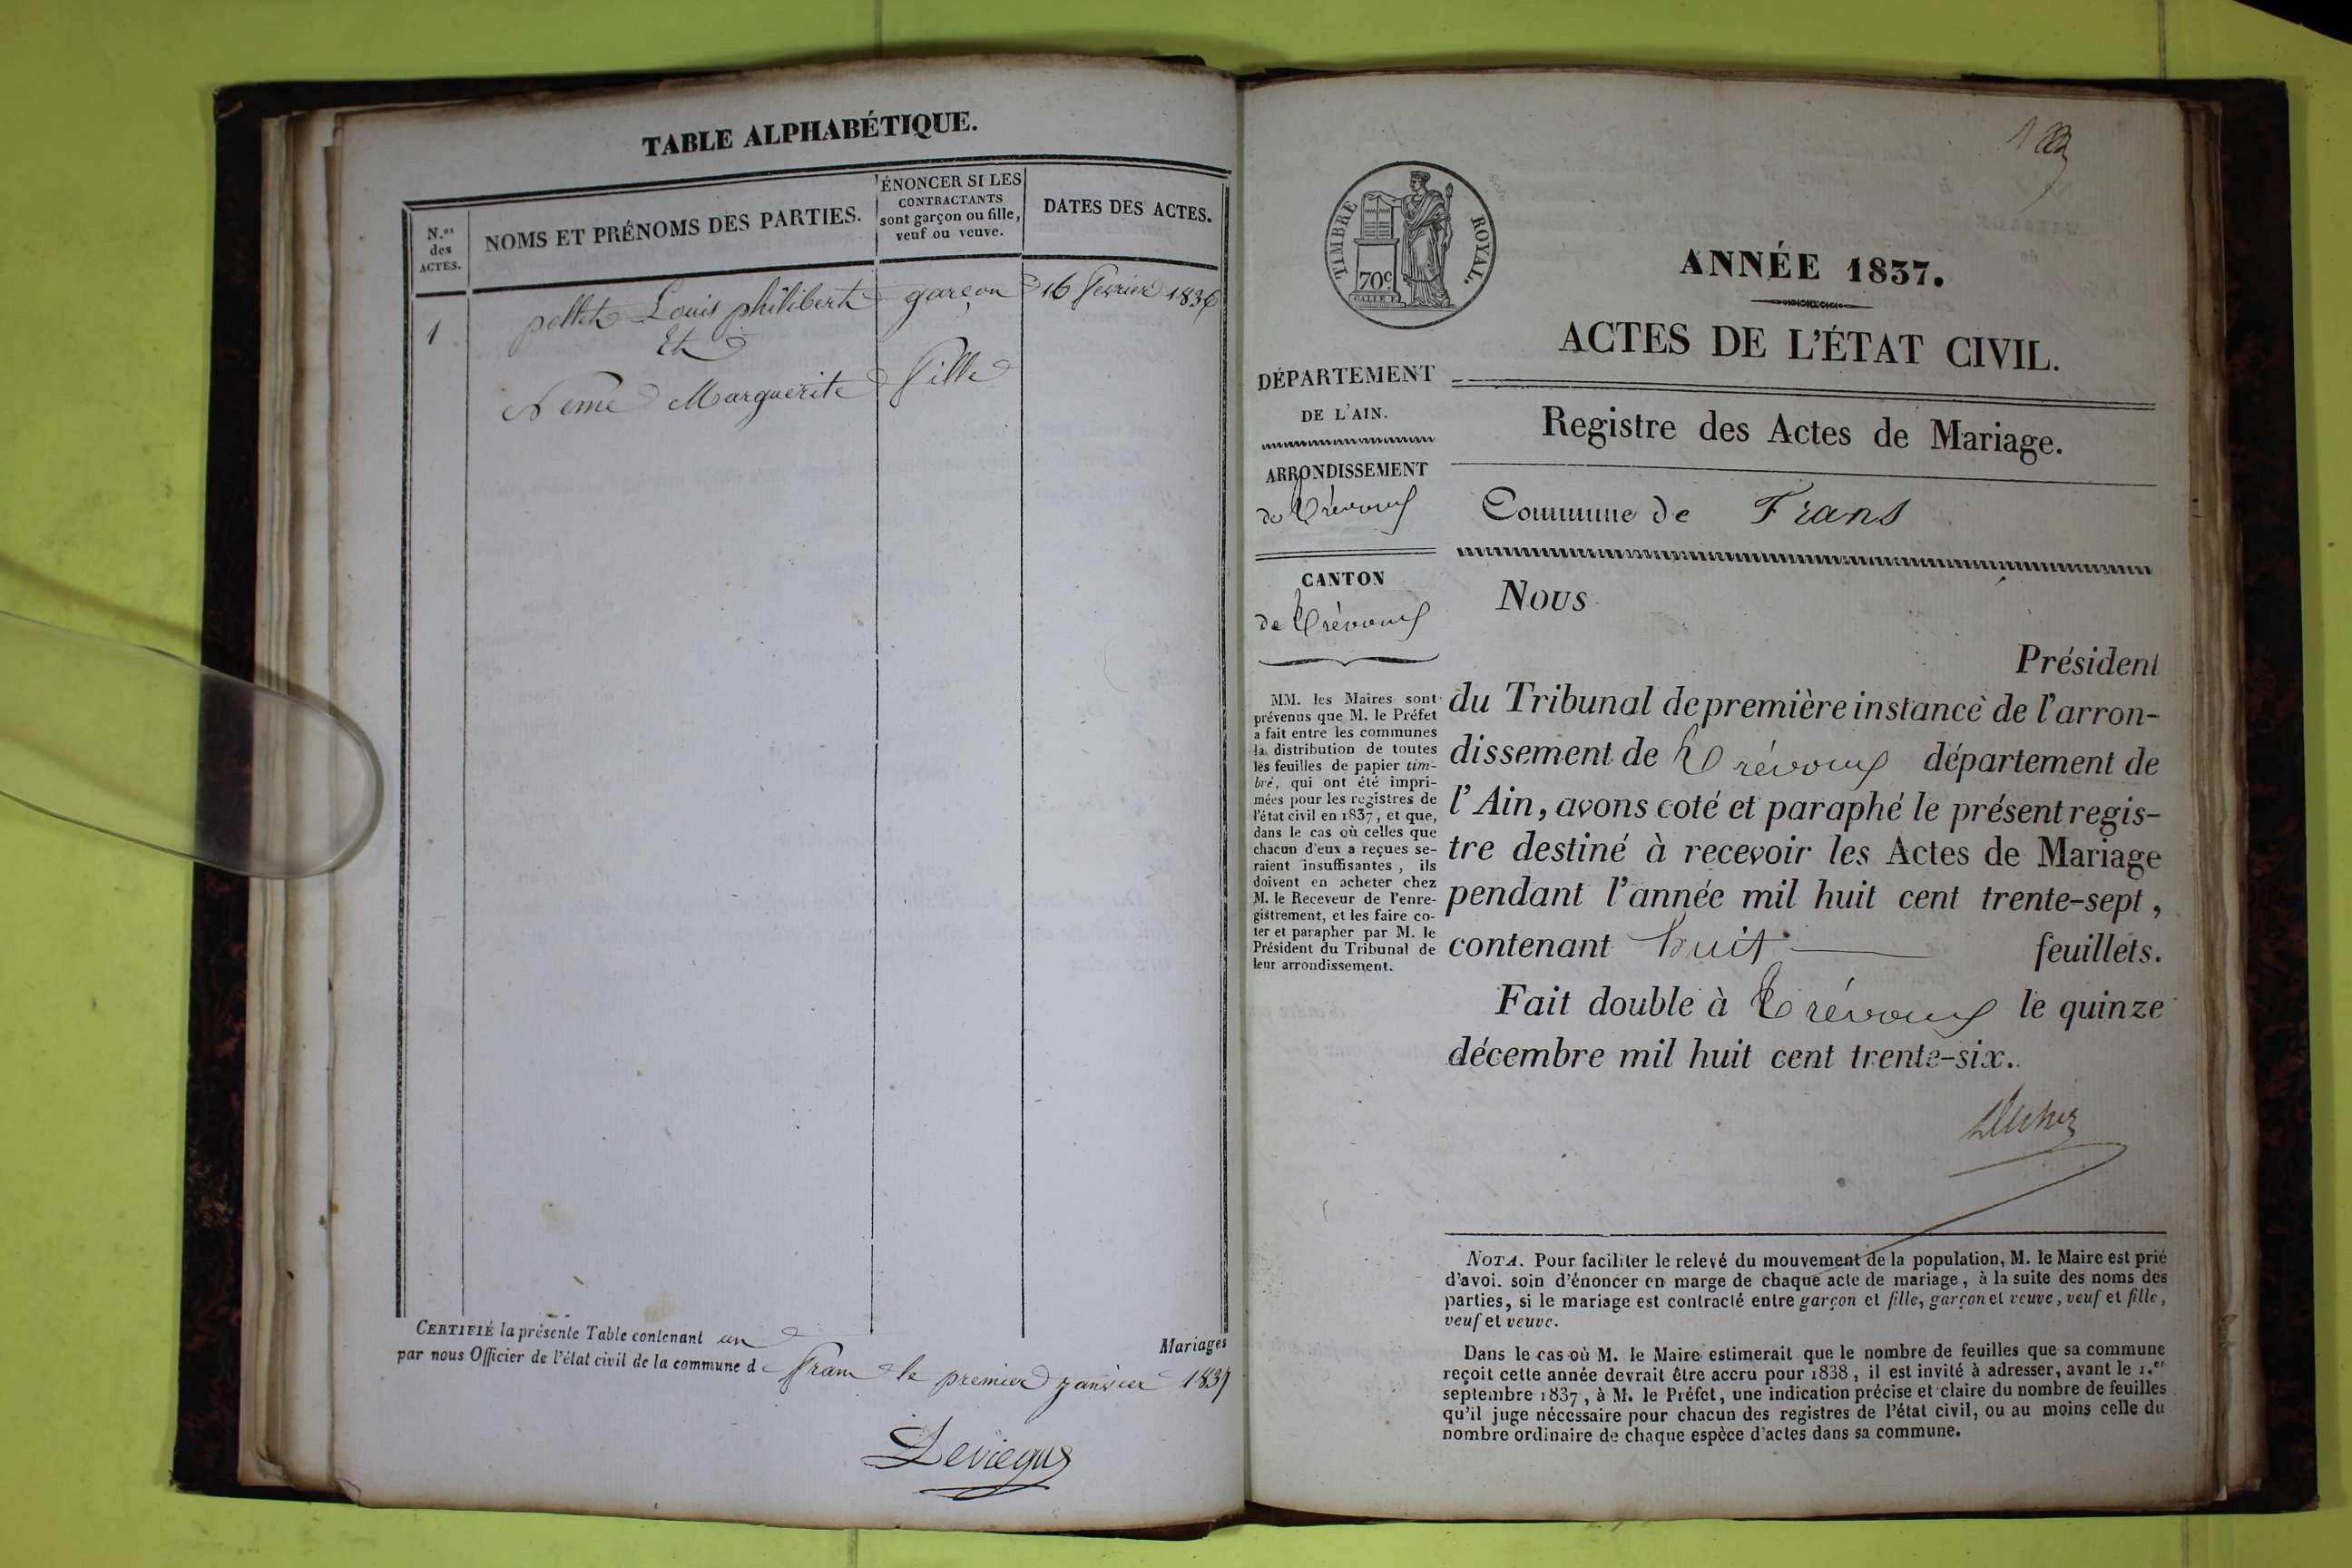 TABLE ALPHABÉTIQUE.
N.os des ACTES.
NOMS ET PRÉNOMS DES PARTIES.
ÉNONCER SI LES
CONTRACTANTS
sont garçon ou fille,
veuf ou veuve.
DATES DES ACTES.
1 pollet Louis philibert garçon 16 fevrier 1836
Et
Neme Marguerite fille
CERTIFIÉ la présente Table contenant un Mariages
par nous Officier de l'état civil de la commune de fran le premier janvier 1837
TIMBRE ROYAL.
70c
ANNÉE 1837.
ACTES DE L'ÉTAT CIVIL.
DÉPARTEMENT
DE L'AIN.
ARRONDISSEMENT
de Trévoux
CANTON
de Trévoux
MM. les Maires sont
prévenus que M. le Préfet
a fait entre les communes
la distribution de toutes
les feuilles de papier tim-
bré, qui ont été impri-
mées pour les registres de
l'état civil en 1837, et que,
dans le cas où celles que
chacun d'eux a reçues se-
raient insuffisantes, ils
doivent en acheter chez
M. le Receveur de l'enre-
gistrement, et les faire co-
ter et parapher par M. le
Président du Tribunal de
leur arrondissement.
Registre des Actes de Mariage.
Commune de Frans
Nous
Président
du Tribunal de première instance de l'arron-
dissement de Trévoux département de
l'Ain, avons coté et paraphé le présent regis-
tre destiné à recevoir les Actes de Mariage
pendant l'année mil huit cent trente-sept,
contenant huit feuillets.
Fait double à Trévoux le quinze
décembre mil huit cent trente-six.
NOTA. Pour faciliter le relevé du mouvement de la population, M. le Maire est prié
d'avoi. soin d'énoncer en marge de chaque acte de mariage, à la suite des noms des
parties, si le mariage est contracté entre garçon et fille, garçon et veuve, veuf et fille,
veuf et veuve.
Dans le cas où M. le Maire estimerait que le nombre de feuilles que sa commune
reçoit cette année devrait être accru pour 1838, il est invité à adresser, avant le 1.er
septembre 1837, à M. le Préfet, une indication précise et claire du nombre de feuilles
qu'il juge nécessaire pour chacun des registres de l'état civil, ou au moins celle du
nombre ordinaire de chaque espèce d'actes dans sa commune.